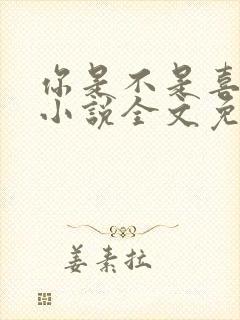 你是不是喜
小说全文免
姜素拉